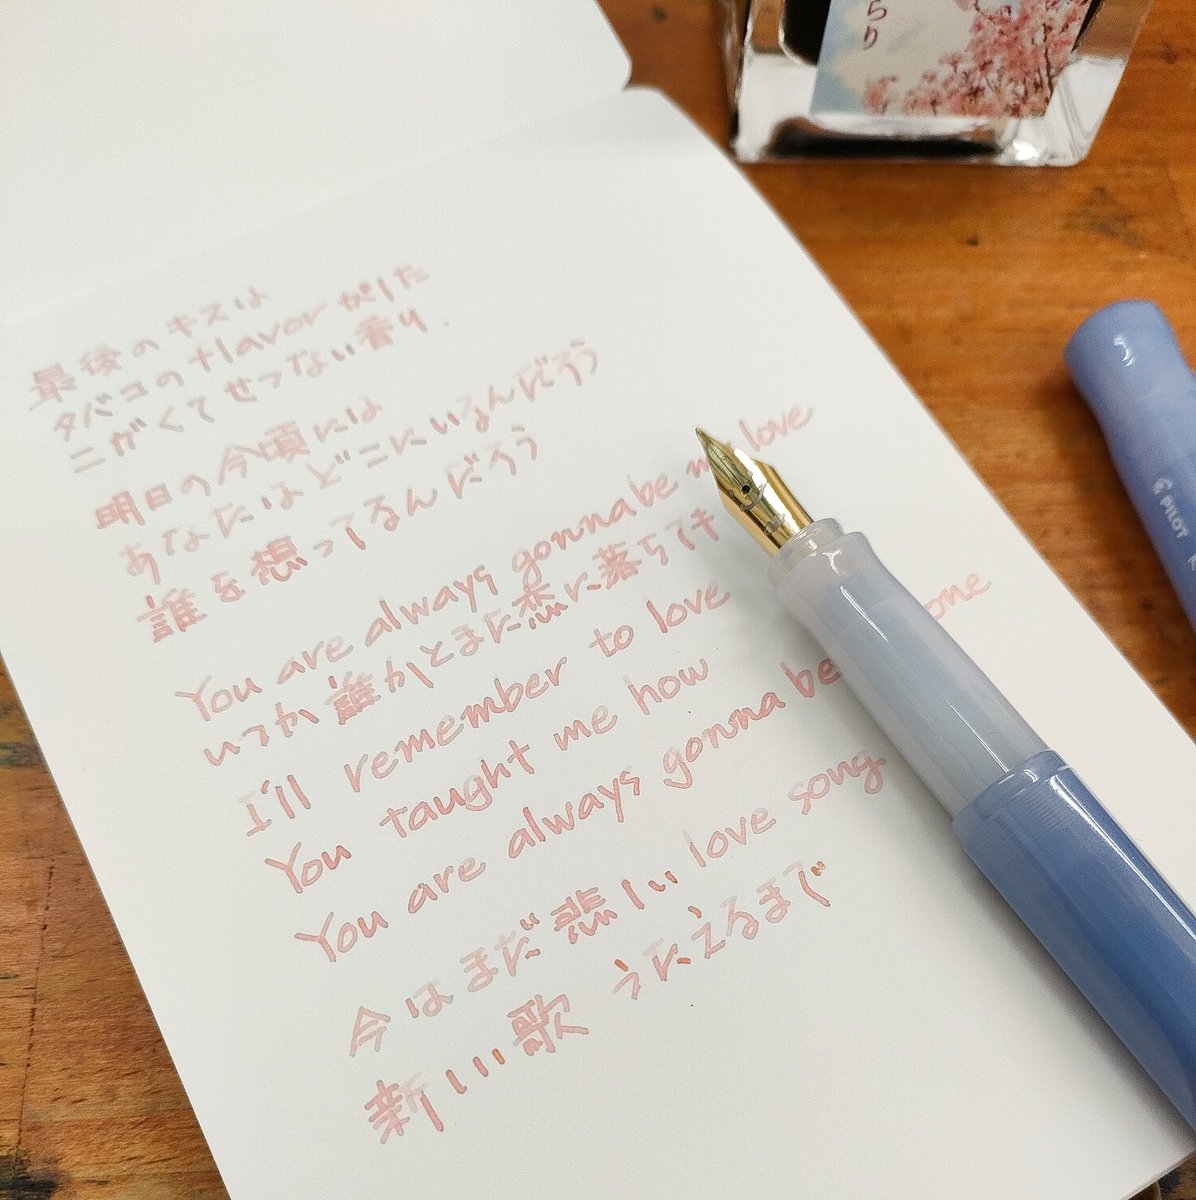 らり
最後のキスは
タバコのflavorがした
ニガくてせつない香り.
明日の今頃には
あなたはどこにいるんだろう
誰を想ってるんだろう
You are always gonna be my love
いつか誰かとまた恋に落ちても
I'll remember to love
You taught me how
You are always gonna be one
今はまだ悲しい love song
新しい歌 うたえるまで
PILOT